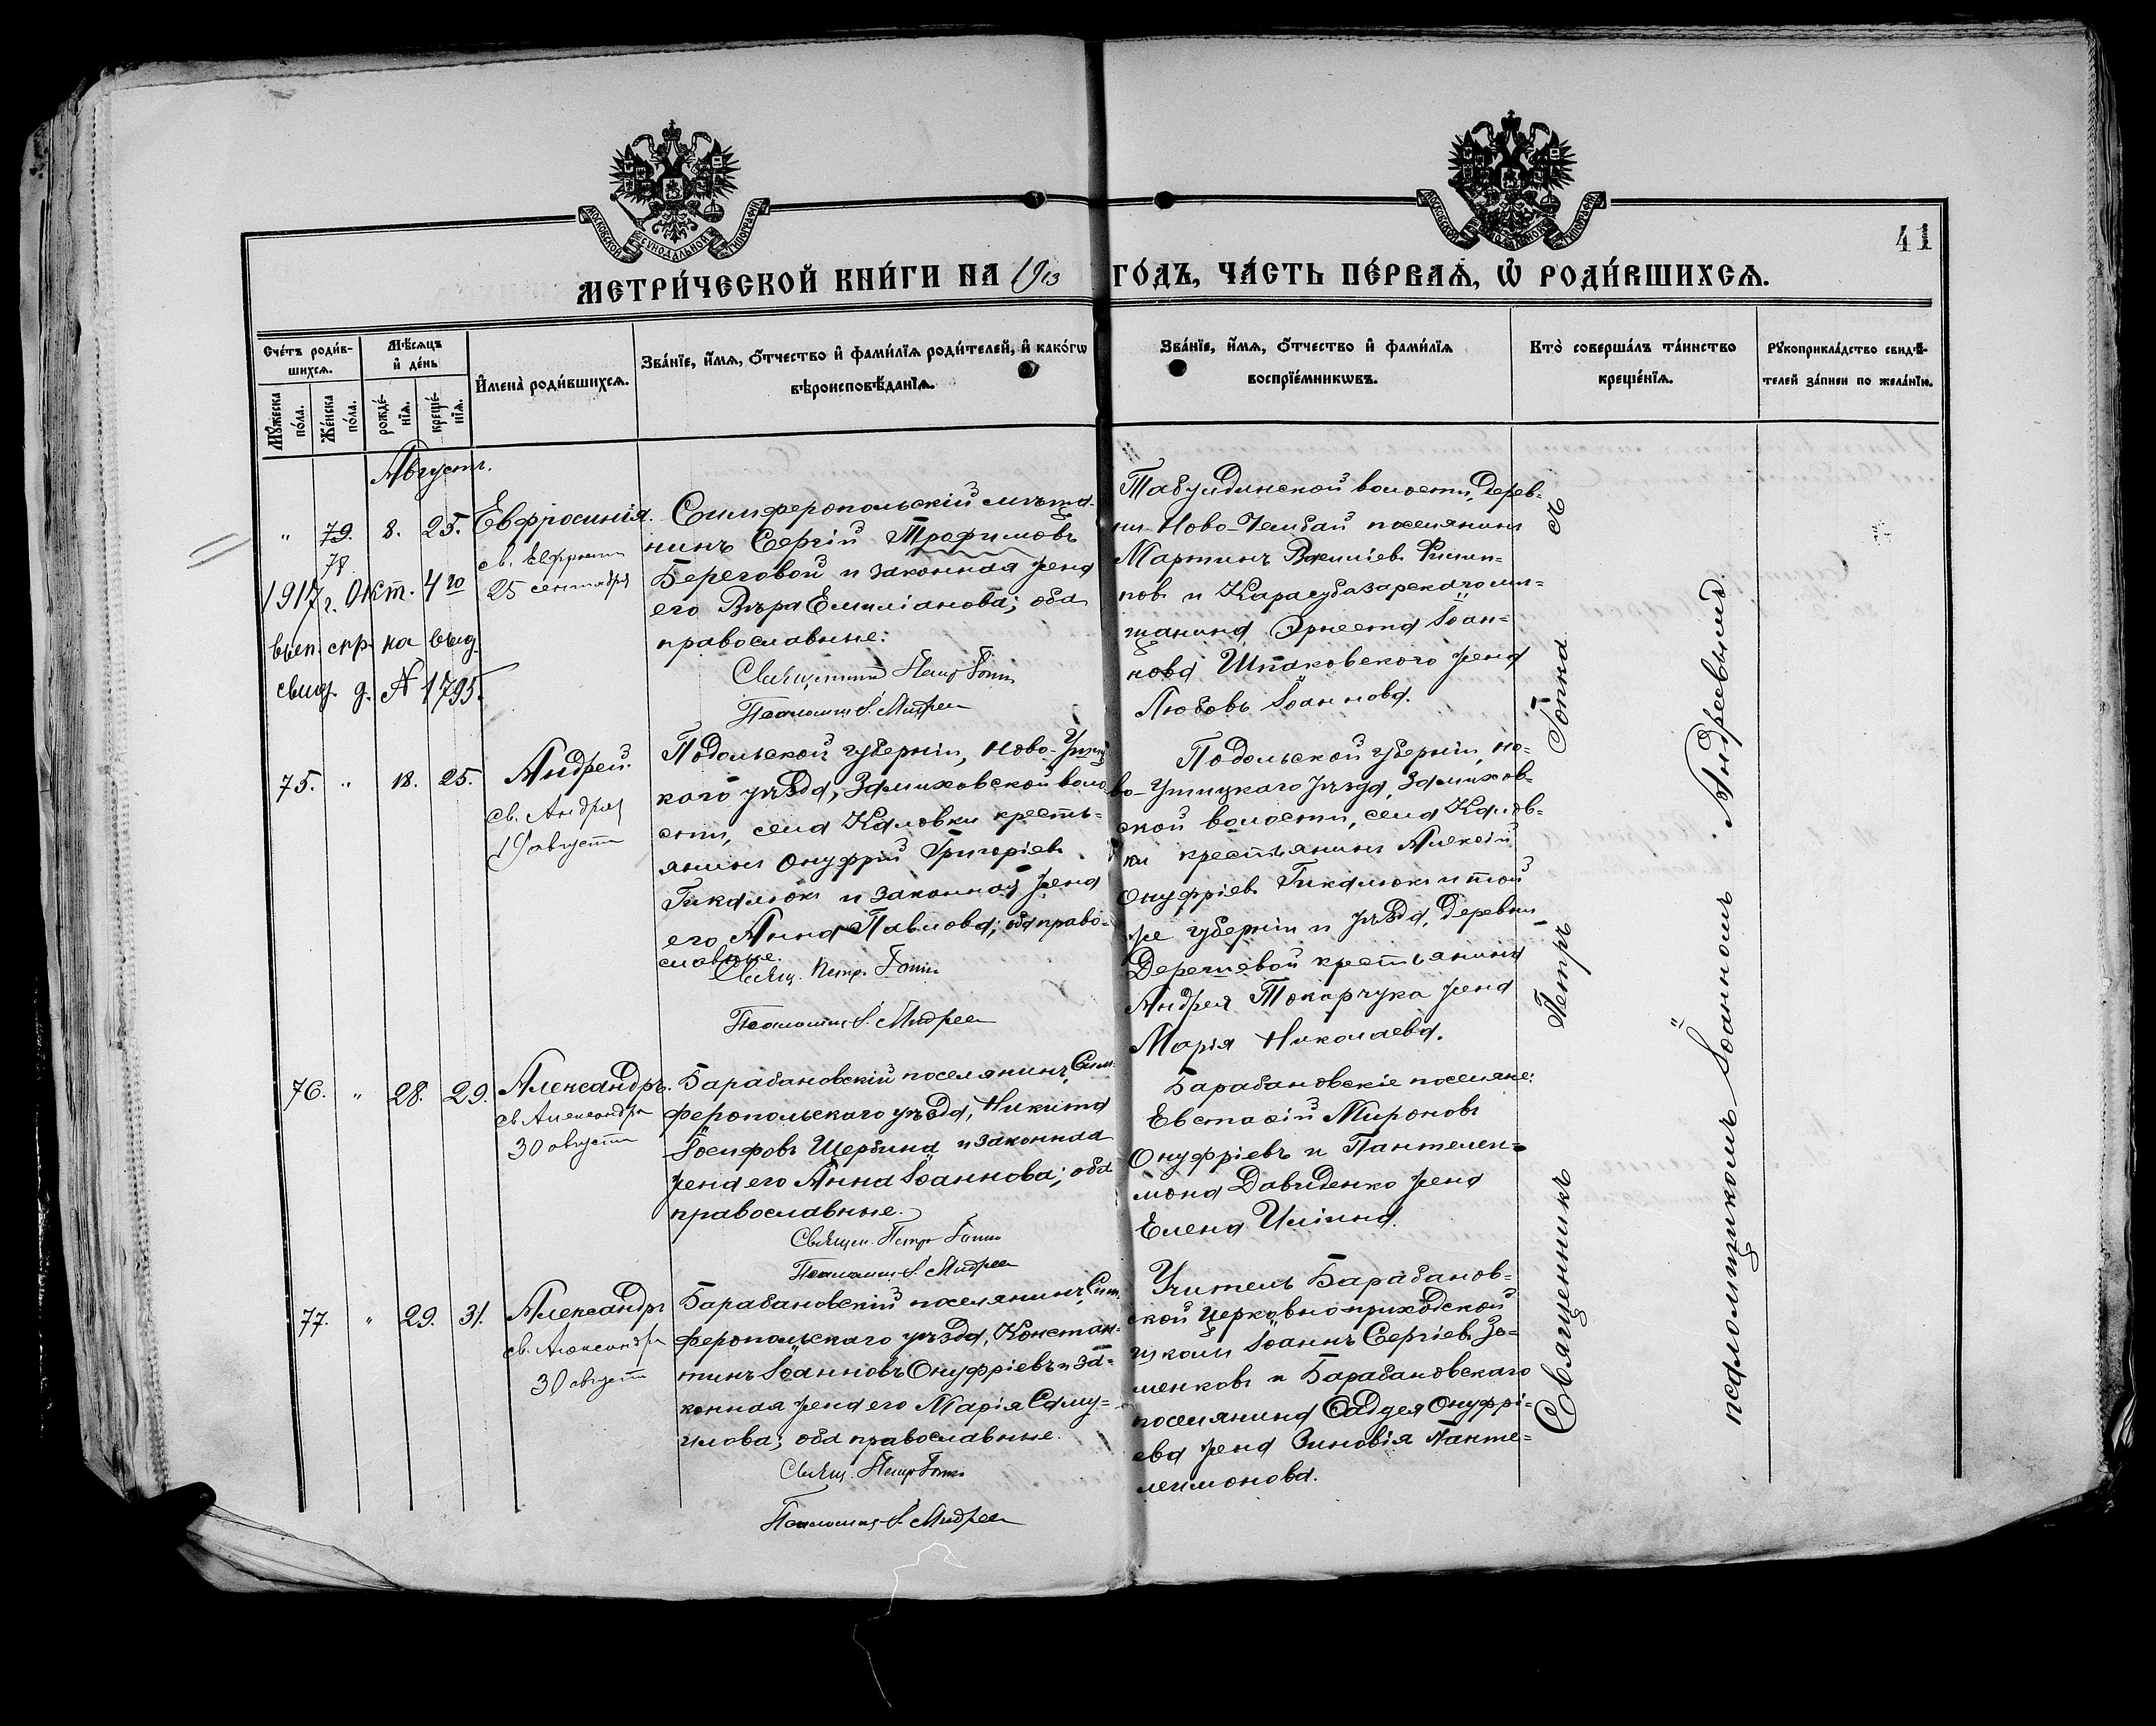 МОСКОВСКОЙ СѴНОДАЛЬНОЙ ТИПОГРАФІИ
МОСКОВСКОЙ СѴНОДАЛЬНОЙ ТИПОГРАФІИ
41
МЕТРИ́ЧЕСКОЙ КНИ́ГИ НА 1913 ГО́ДЪ, ЧА́СТЬ ПЕ́РВАѦ, Ѡ҆ РОДИ́ВШИХСѦ.
Сче́тъ роди́в-
шихсѧ.
Мꙋ́жеска
по́ла.
Же́нска
по́ла.
Мѣ́сѧцъ
и҆ де́нь
рожде́-
нїѧ.
креще́-
нїѧ.
И҆мена̀ роди́вшихсѧ.
Зва́нїе, и҆́мѧ, ѻ҆́тчество и҆ фами́лїѧ роди́телей, и҆ како́гѡ
вѣроисповѣ́данїѧ.
Зва́нїе, и҆́мѧ, ѻ҆́тчество и҆ фами́лїѧ
воспрїе́мникѡвъ.
Кто̀ соверша́лъ та́инство
креще́нїѧ.
Рꙋкоприкла́дство свидѣ́-
телей за́писи по жела́нїю.
Августъ.
" 79. 8. 25. Евфросинія.
78
св. Евфросиніи
25 сентября
1917 г. Окт. 4го
вып. спр. на выд.
свид. д. № 1795.
Симферопольскій мѣща-
нинъ Сергій Трофимовъ
Береговой и законная жена
его Вѣра Емиліанова; оба
православные.
Священникъ Петръ Гопка
Псаломщ. І. Андреев
Табулдинской волости, дерев-
ни Ново-Чембай поселянинъ
Мартинъ
новъ и Карасубазарскаго мѣ-
щанина Эрнеста Іоан-
нова Шпаковскаго жена
Любовь Іоаннова.
75. " 18. 25. Андрей.
св. Андрея
19 августа
Подольской губерніи, Ново-Ушиц-
каго уѣзда, Замиховской воло-
сти, села Каловки кресть-
янинъ Онуфрій Григоріевъ
Гикалюкъ и законная жена
его Анна Павлова; оба право-
славные.
Свящ. Петръ Гопка
Псаломщ. І. Андреев
Подольской губерніи, Но-
во-Ушицкаго уѣзда, Замихов-
ской волости, села Калов-
ки крестьянинъ Алексій
Онуфріевъ Гикалюкъ и той
же губерніи и уѣзда, деревни
крестьянина
Андрея Токарчука жена
Марія Николаева.
76. " 28. 29. Александръ.
св. Александра
30 августа
Барабановскій поселянинъ, Сим-
феропольскаго уѣзда, Никита
Іосифовъ Щербина и законная
жена его Анна Іоаннова; оба
православные.
Священ. Петръ Гопка
Псаломщ. І. Андреев
Барабановскіе поселяне:
Евстафій Мироновъ
Онуфріевъ и Пантелеи-
мона Давиденко жена
Елена Иліина.
77. " 29. 31. Александръ
св. Александра
30 августа
Барабановскій поселянинъ, Сим-
феропольскаго уѣзда, Констан-
тинъ Іоанновъ Онуфріевъ и за-
конная жена его Марія Саму-
илова; оба православные.
Свящ. Петръ Гопка
Псаломщ. І. Андреев
Учитель Барабанов-
ской церковно-приходской
школы Іоаннъ Сергіевъ
менковъ и Барабановскаго
поселянина Фаддея Онуфрі-
ева жена Зиновія Панте-
леимонова.
Священникъ Петръ Гопка съ
псаломщикомъ Іоанномъ Андреевымъ.